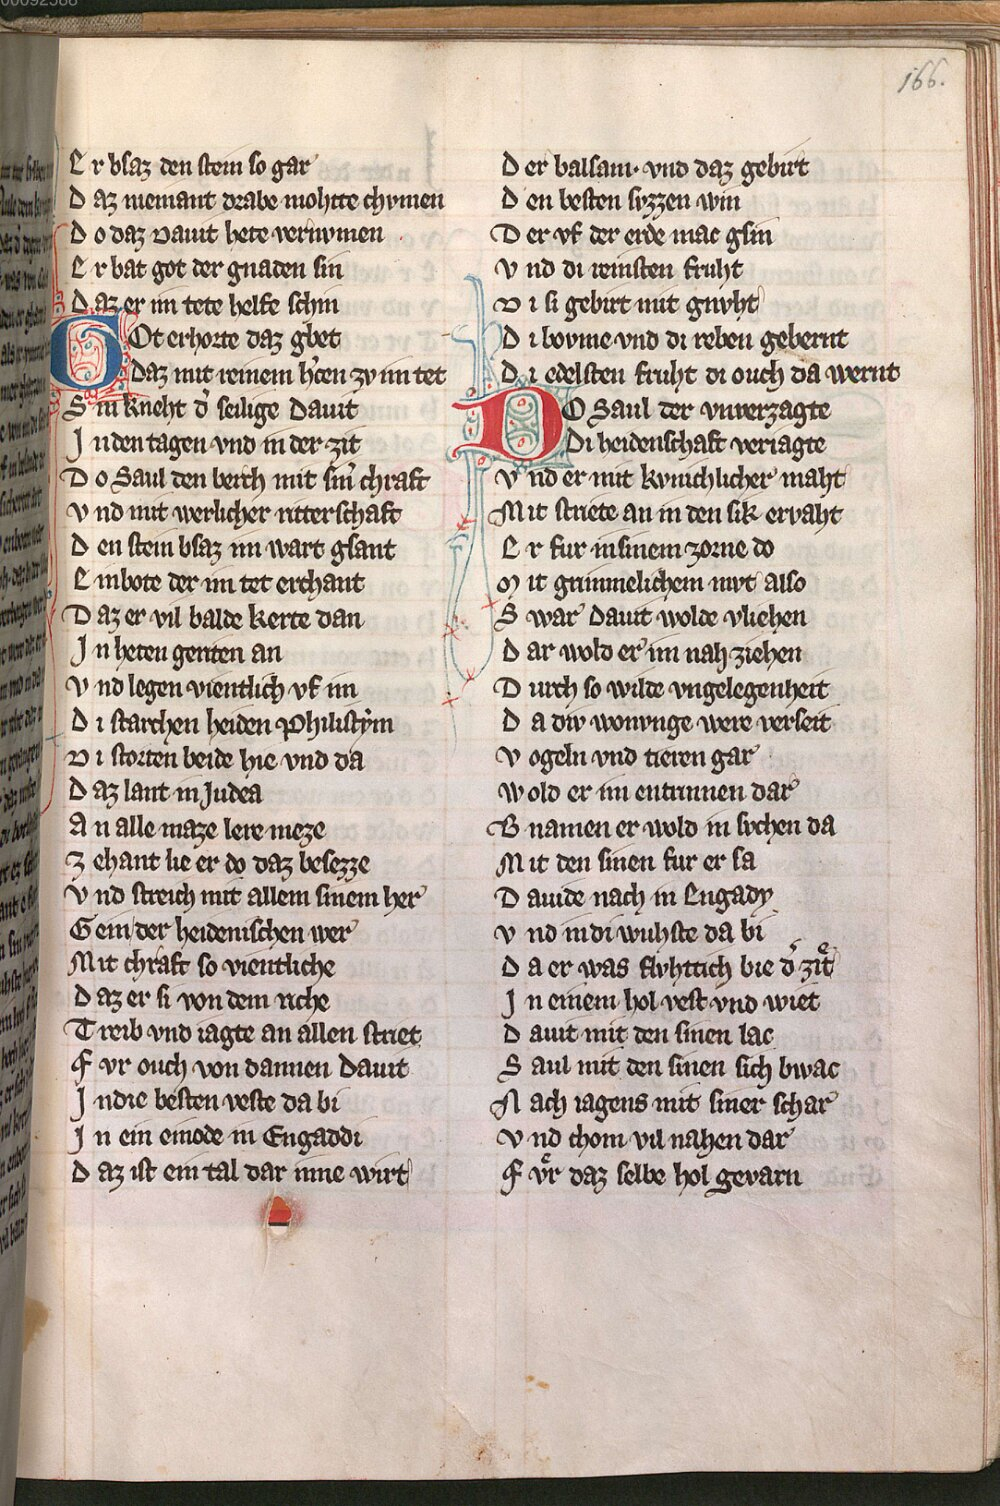 166.
Er bsaz den stein so gar
Daz niemant drabe mohtte chomen
Do daz Dauit hete vernvmen
Er bat got der gnaden sin
Daz er im tete helfe schin
Got erhorte daz gbet
Daz mit reinem h'cen zv im tet
Sin kneht d' seilige Dauit
In den tagen vnd in der zit
Do Saul den berch mit sin' chraft
Vnd mit werlicher ritterschaft
Den stein bsaz im wart gsant
Ein bote der im tet erchant
Daz er vil balde kerte dan
In heten genten an
Vnd legen vientlich vf im
Di starchen heiden Philistym
Di storten beide hie vnd da
Daz lant in Judea
An alle maze lere meze
Zehant lie er do daz besezze
Vnd streich mit allem sinem her
Gein der heidenischen wer
Mit chraft so vientliche
Daz er si von dem riche
Treib vnd iagte an allen striet
Fvr ouch von dannen Dauit
In die besten veste da bi
In ein einode in Engaddi
Daz ist ein tal dar inne wirt
Der balsam· vnd daz gebirt
Den besten svzzen win
Der vf der erde mac gsin
Vnd di reinsten fruht
Di si gebirt mit gnvht
Di bovme vnd di reben gebernt
Di edelsten fruht di ouch da wernt
Do Saul der vnverzagte
Di heidenschaft veriagte
Vnd er mit kvnichlicher maht
Mit striete an in den sik ervaht
Er fur in sinem zorne do
Mit grimmelichem mvt also
Swar Dauit wolde vliehen
Dar wold er im nah ziehen
Durch so wilde vngelegenheit
Da div wonvnge were verseit
Vogeln vnd tieren gar
Wold er im entrinnen dar
Bnamen er wold in svchen da
Mit den sinen fur er sa
Dauide nach in Engady
Vnd in di wuhste da bi
Da er was flvhttich bie d' zit
In einem hol vest vnd wiet
Dauit mit den sinen lac
Saul mit den sinen sich bwac
Nach iagens mit siner schar
Vnd chom vil nahen dar
Fvr daz selbe hol gevarn